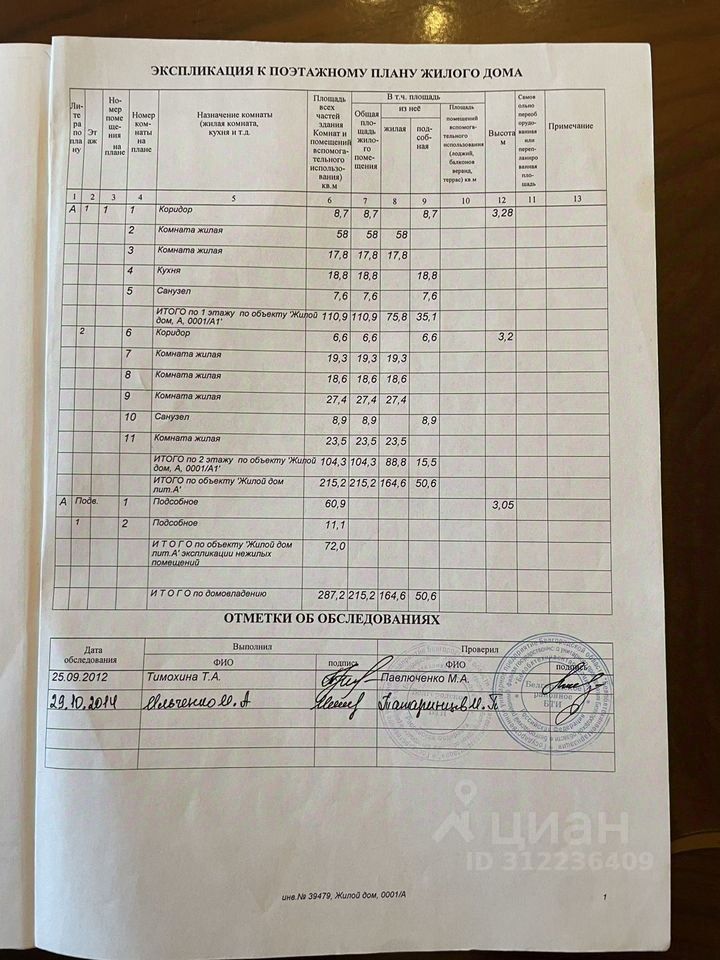 ЭКСПЛИКАЦИЯ К ПОЭТАЖНОМУ ПЛАНУ ЖИЛОГО ДОМА
Ли-те ра по пла ну | Эт аж | Но-мер поме ще-ния на плане | Номер ком-наты на плане | Назначение комнаты (жилая комната, кухня и т.д. | Площадь всех частей здания Комнат и помещений вспомога-тельного использо-вания) кв.м | В т.ч. площадь | Общая пло-щадь жило-го поме-щения | из неё | жилая | под-соб-ная | Площадь помещений вспомога-тельного использования (лоджий, балконов веранд, террас) кв.м | Высота м | Самов ольно переоб орудо-ванная или перепланиро ванная пло-щадь | Примечание
1 2 3 4 5 6 7 8 9 10 11 12 13
А 1 1 1 Коридор 8,7 8,7 8,7 3,28
2 Комната жилая 58 58 58
3 Комната жилая 17,8 17,8 17,8
4 Кухня 18,8 18,8 18,8
5 Санузел 7,6 7,6 7,6
ИТОГО по 1 этажу по объекту 'Жилой дом, А, 0001/А1' 110,9 110,9 75,8 35,1
2 6 Коридор 6,6 6,6 6,6 3,2
7 Комната жилая 19,3 19,3 19,3
8 Комната жилая 18,6 18,6 18,6
9 Комната жилая 27,4 27,4 27,4
10 Санузел 8,9 8,9 8,9
11 Комната жилая 23,5 23,5 23,5
ИТОГО по 2 этажу по объекту 'Жилой дом, А, 0001/А1' 104,3 104,3 88,8 15,5
ИТОГО по объекту 'Жилой дом лит.А' 215,2 215,2 164,6 50,6
А Подв. 1 Подсобное 60,9 3,05
1 2 Подсобное 11,1
И Т О Г О по объекту 'Жилой дом лит.А' экспликации нежилых помещений 72,0
И Т О Г О по домовладению 287,2 215,2 164,6 50,6
ОТМЕТКИ ОБ ОБСЛЕДОВАНИЯХ
Дата обследования | Выполнил | Проверил
ФИО | подпись | ФИО | подпись
25.09.2012 Тимохина Т.А. Павлюченко М.А.
29.10.2014 Ильченко И. А
Белгородское районное БТИ
циан
ID 312236409
инв.№ 39479, Жилой дом, 0001/А 1